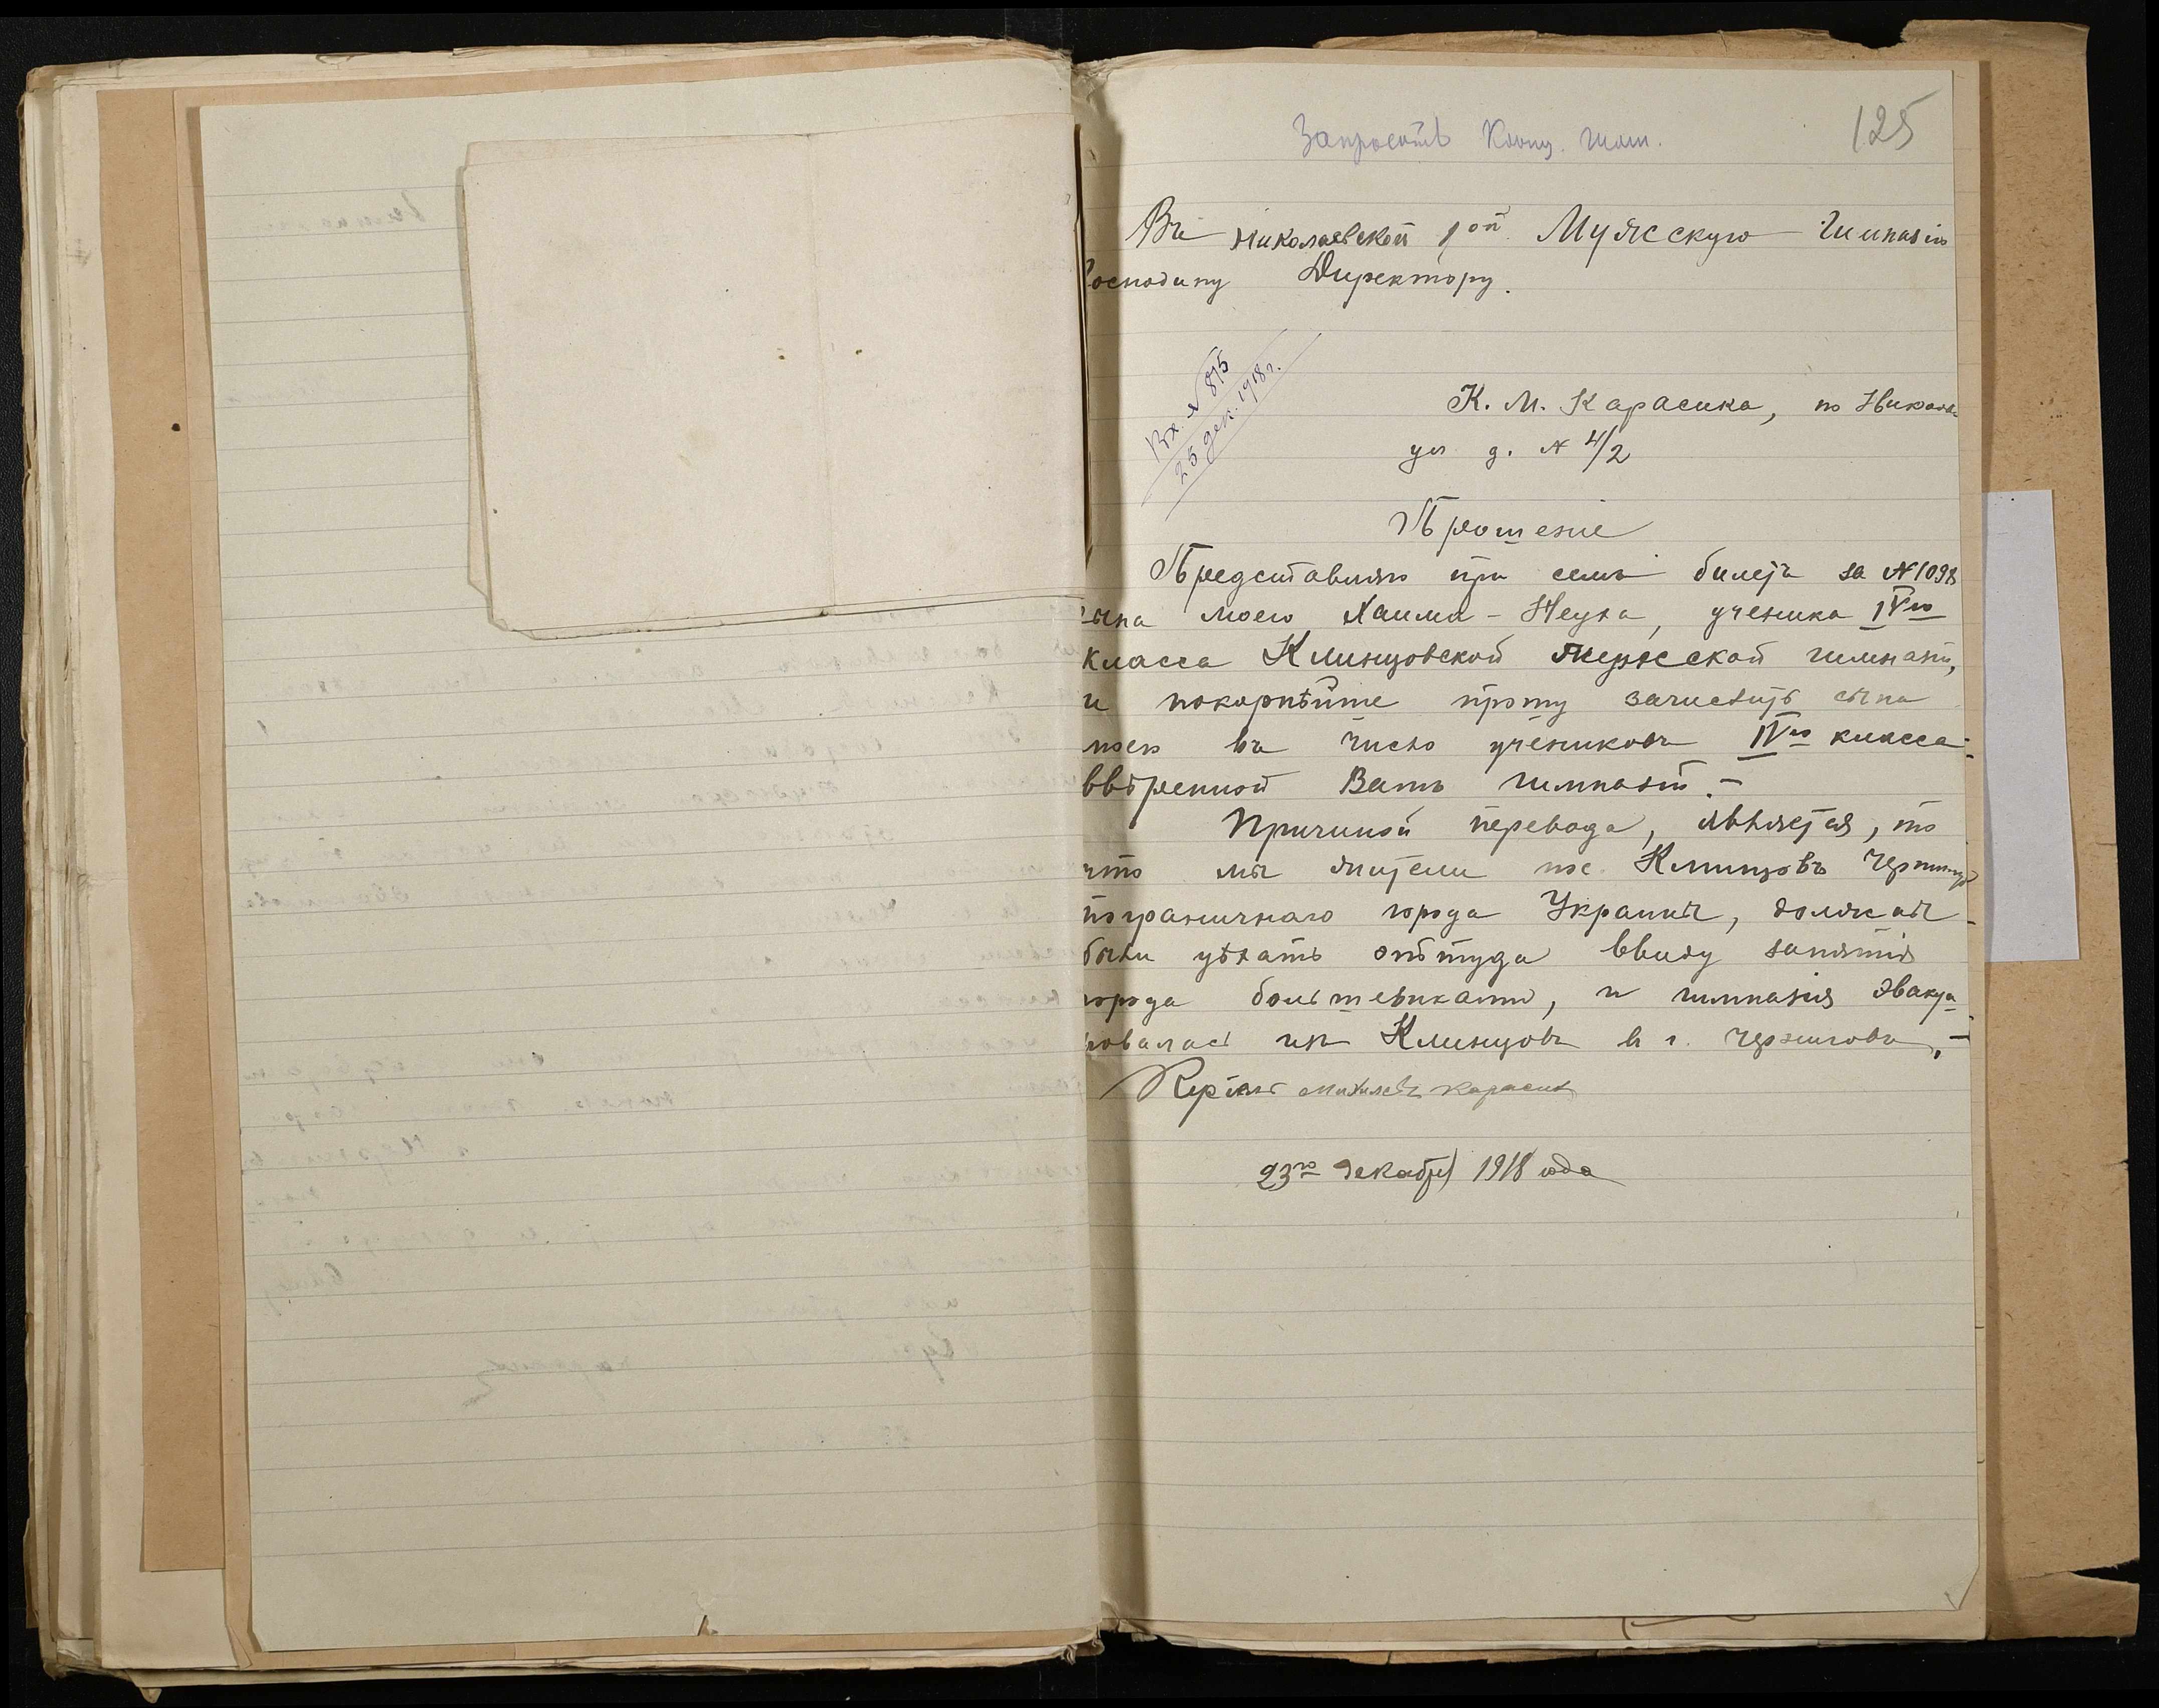 125
Запросить Клинц. гимн.
Въ Николаевской 1ой Мужскую Гимназiю
Господину Директору.
Вх. № 815
25 дек. 1918 г.
К. М. Карасика, по Никольс
ул д. № 4/2
Прошенiе
Представляю при семъ билетъ за № 1098
сына моего Хаима-Неуха, ученика IVго
класса Клинцовской Мужеской гимназiи,
и покорнѣйше прошу зачислить сына
моего въ число учениковъ IVго класса
ввѣренной Вамъ гимназiи. –
Причиной перевода, является, то
что мы жители пос. Клинцовъ Черниго
пограничнаго города Украины, должны
были уѣхать оттуда ввиду занятiя
города большевиками, и гимназiя эвакуи
ровалась изъ Клинцовъ въ г. Черниговъ. –
Карасикъ
23го Декабря 1918 года